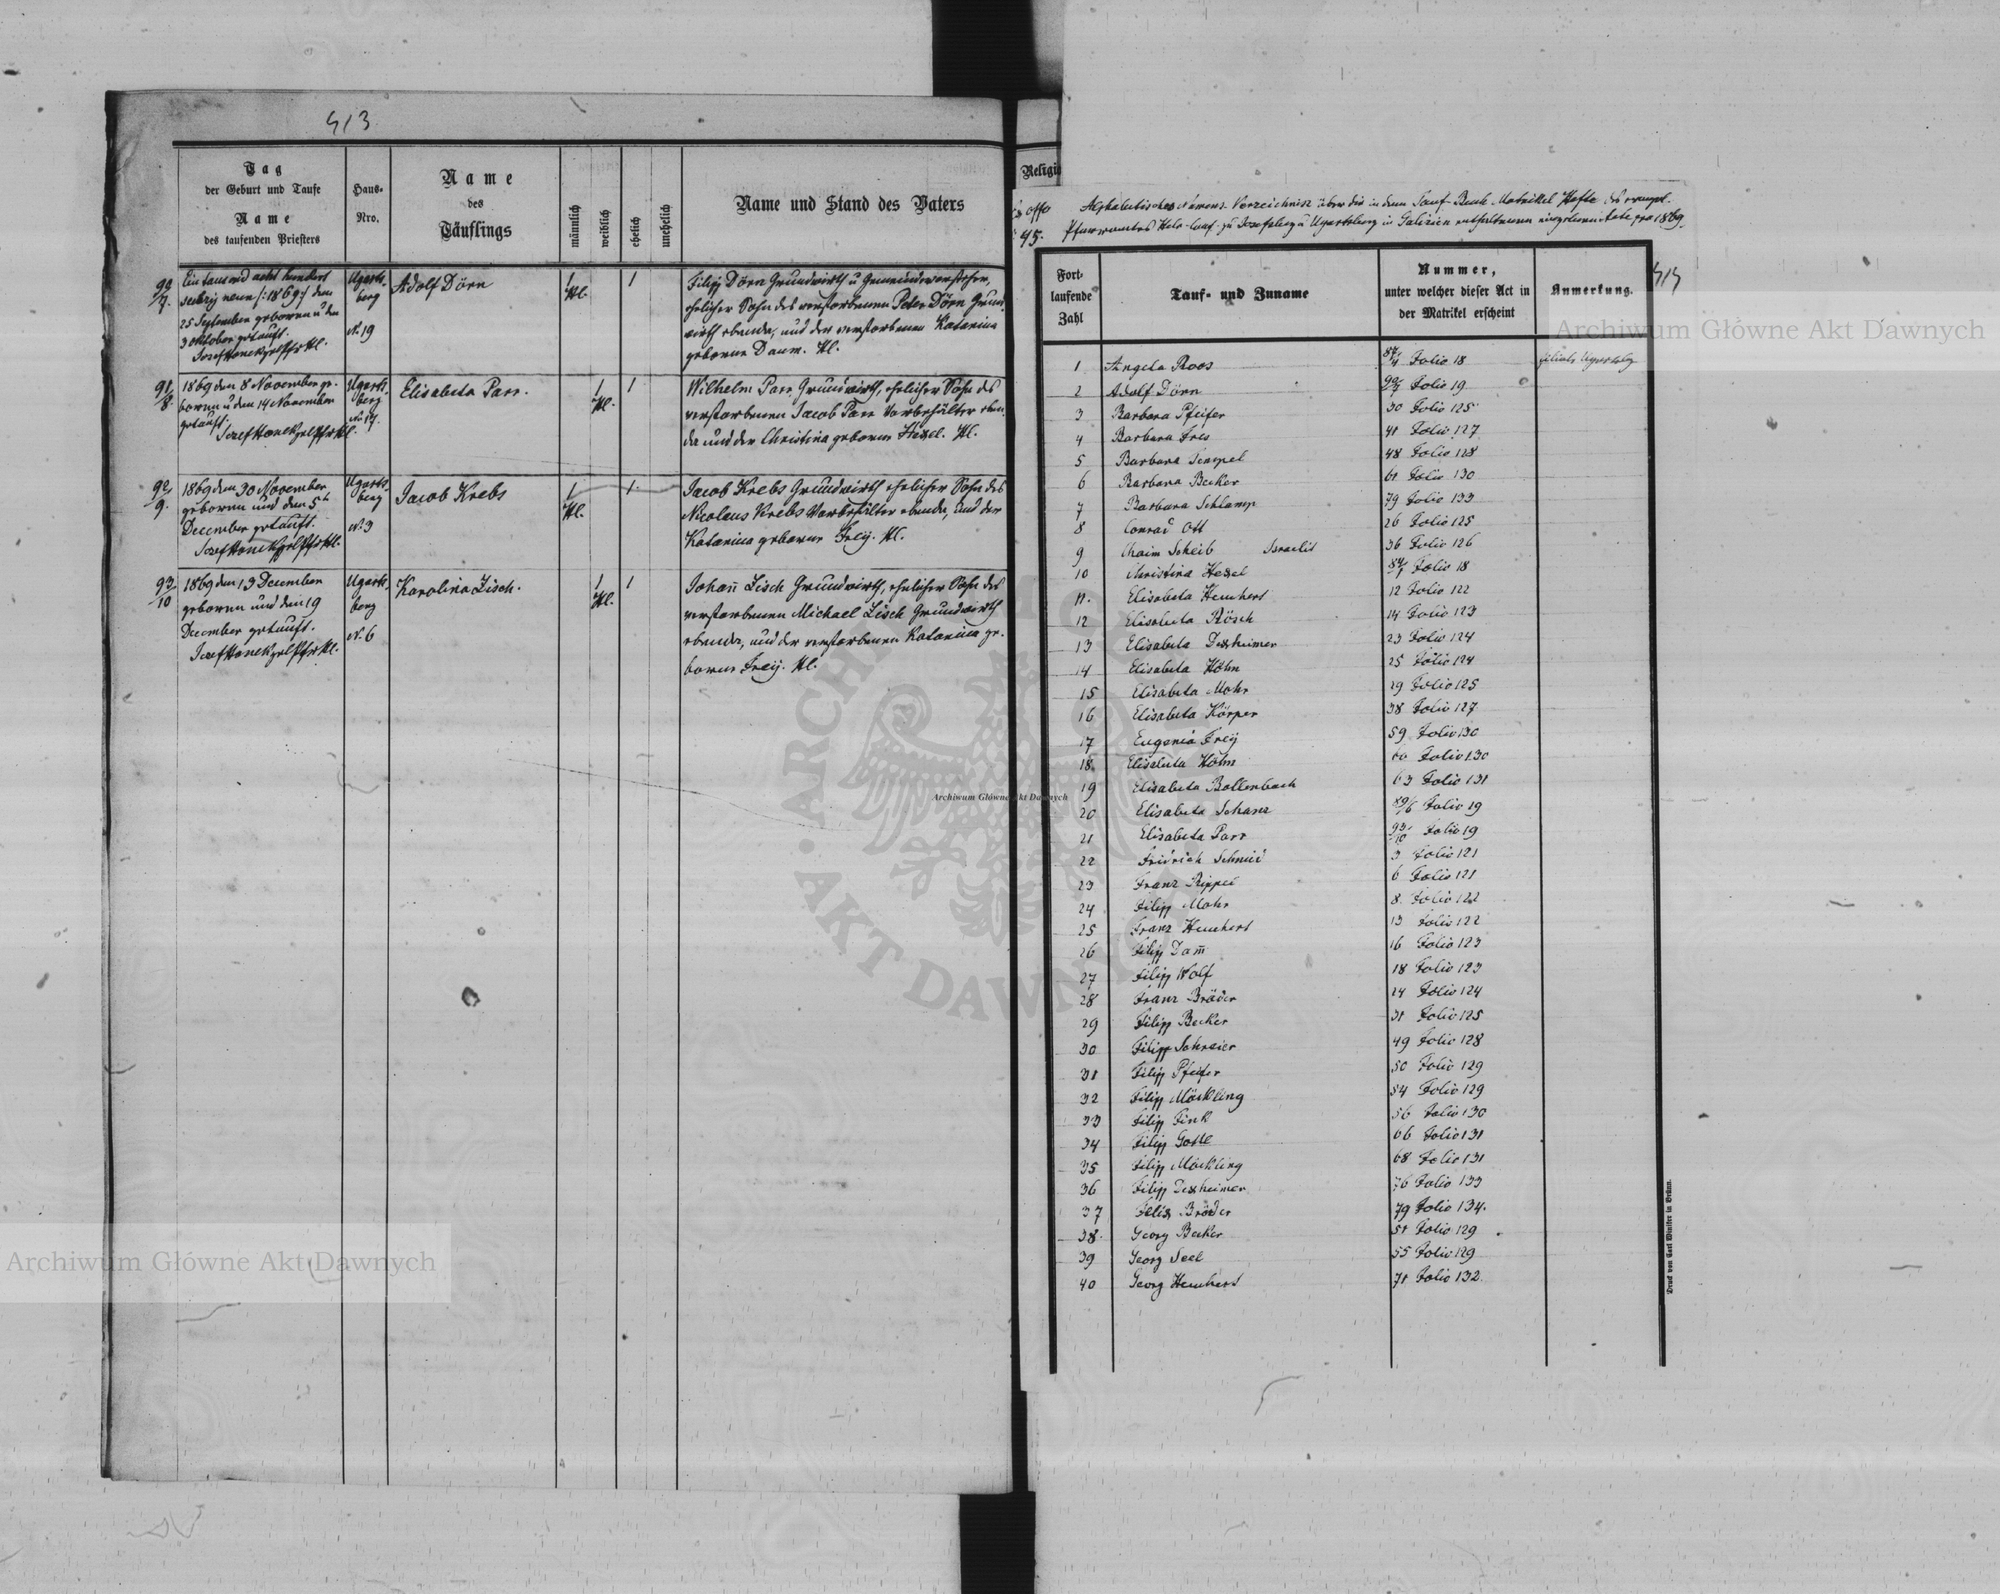 413
Tag
der Geburt und Taufe
Name
des taufenden Priesters
Haus-
Nro.
Name
des
Täuflings
männlich
weiblich
ehelich
unehelich
Name und Stand des Vaters
90/7.
Ein tausend acht hundert
sechzig neun /:1869:/ den
25 September geboren u den
3 Oktober getauft.
Ugarts-
berg
N. 19
Adolf Dörn
1
Hl.
1
Filipp Dörn Grundwirth u Gemeindevorsteher,
ehelicher Sohn des verstorbenen Peter Dörn Grund-
wirth ebenda, und der verstorbenen Katarina
geborene Daum. Hl.
91/8.
1869 den 8 November ge-
boren u den 14 November
getauft.
Ugarts-
berg
N. 17.
Elisabeta Parr.
1
Hl.
1
Wilhelm Parr Grundwirth, ehelicher Sohn des
verstorbenen Jacob Parr Vorbehälter eben-
da und der Christina geborene Hexel. Hl.
92/9.
1869 den 30 November
geboren und den 5t
December getauft.
Ugarts
berg
N. 3
Jacob Krebs
1
Hl.
1
Jacob Krebs Grundwirth ehelicher Sohn des
Nicolaus Krebs Vorbehälter ebenda, und der
Katarina geborene Freÿ. Hl.
93/10
1869 den 13 December
geboren und den 19
December getauft.
Ugarts-
berg
N. 6
Karolina Lisch.
1
Hl.
1
Johañ Lisch Grundwirth, ehelicher Sohn des
verstorbenen Michael Lisch Grundwirth
ebenda, und der verstorbenen Katarina ge-
borene Freÿ. Hl.
Religi
45.
Alphabetisches Namens Verzeichniss über die in dem Tauf-Buch-Matrikel Hefte des evangel.
Pfarramtes Helv. Conf. zu Josefsberg u Ugartsberg in Galizien enthaltenen eingetragenen Acte pro 1869.
414
Fort-
laufende
Zahl
Tauf- und Zuname
Nummer,
unter welcher dieser Act in
der Matrikel erscheint
Anmerkung.
1 Angela Roos 87/4 Folio 18 filiale Ugartsbg
2 Adolf Dörn 90/7 Folio 19
3 Barbara Pfeifer 30 Folio 125
4 Barbara Fres 41 Folio 127
5 Barbara Simpel 48 Folio 128
6 Barbara Becker 61 Folio 130
7 Barbara Schlamp 79 Folio 133
8 Conrad Ott 26 Folio 125
9 Chaim Scheib Israelit 36 Folio 126
10 Christina Hexel 84/1 Folio 18
11. Elisabeta Heuchert 12 Folio 122
12 Elisabeta Rösch 14 Folio 123
13 Elisabeta Dexheimer 23 Folio 124
14 Elisabeta Höhn 25 Folio 124
15 Elisabeta Mohr 29 Folio 125
16 Elisabeta Körper 38 Folio 127
17 Eugenia Freÿ 59 Folio 130
18. Elisabeta Höhn 60 Folio 130
19 Elisabeta Bollenbach 63 Folio 131
20 Elisabeta Schanz 89/6 Folio 19
21 Elisabeta Parr 93/10 Folio 19
22 Fridrich Schmid 3 Folio 121
23 Franz Rippel 6 Folio 121
24 Filipp Mohr 8. Folio 122
25 Franz Heuchert 13 Folio 122
26 Filipp Dam̄ 16 Folio 123
27 Filipp Wolf 18 Folio 123
28 Franz Bräder 24 Folio 124
29 Filipp Becker 31 Folio 125
30 Filipp Schreier 49 Folio 128
31 Filipp Pfeifer 50 Folio 129
32 Filipp Möckling 54 Folio 129
33 Filipp Fink 56 Folio 130
34 Filipp Gottl 66 Folio 131
35 Filipp Möckling 68 Folio 131
36 Filipp Dexheimer 76 Folio 133
37 Felix Bröder 79 Folio 134.
38. Georg Becker 51 Folio 129
39 Georg Seel 55 Folio 129
40 Georg Heuchert 71 Folio 132
Druck von Carl Winiker in Brünn.
Archiwum Główne Akt Dawnych
Archiwum Główne Akt Dawnych
Archiwum Główne Akt Dawnych
ARCH
AKT DAWNYCH